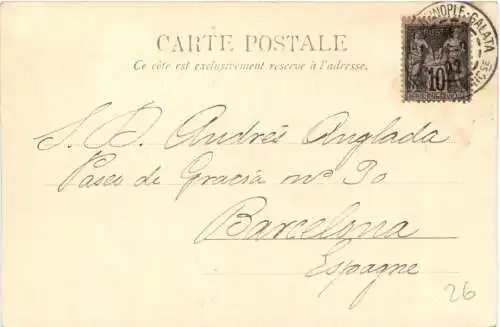 NOPLE-GALATA
10
CARTE POSTALE
Ce côté est exclusivement réservé à l'adresse.
S. D. Andrés Anglada
Paseo de Gracia nº 90
Barcelona
Espagne
26